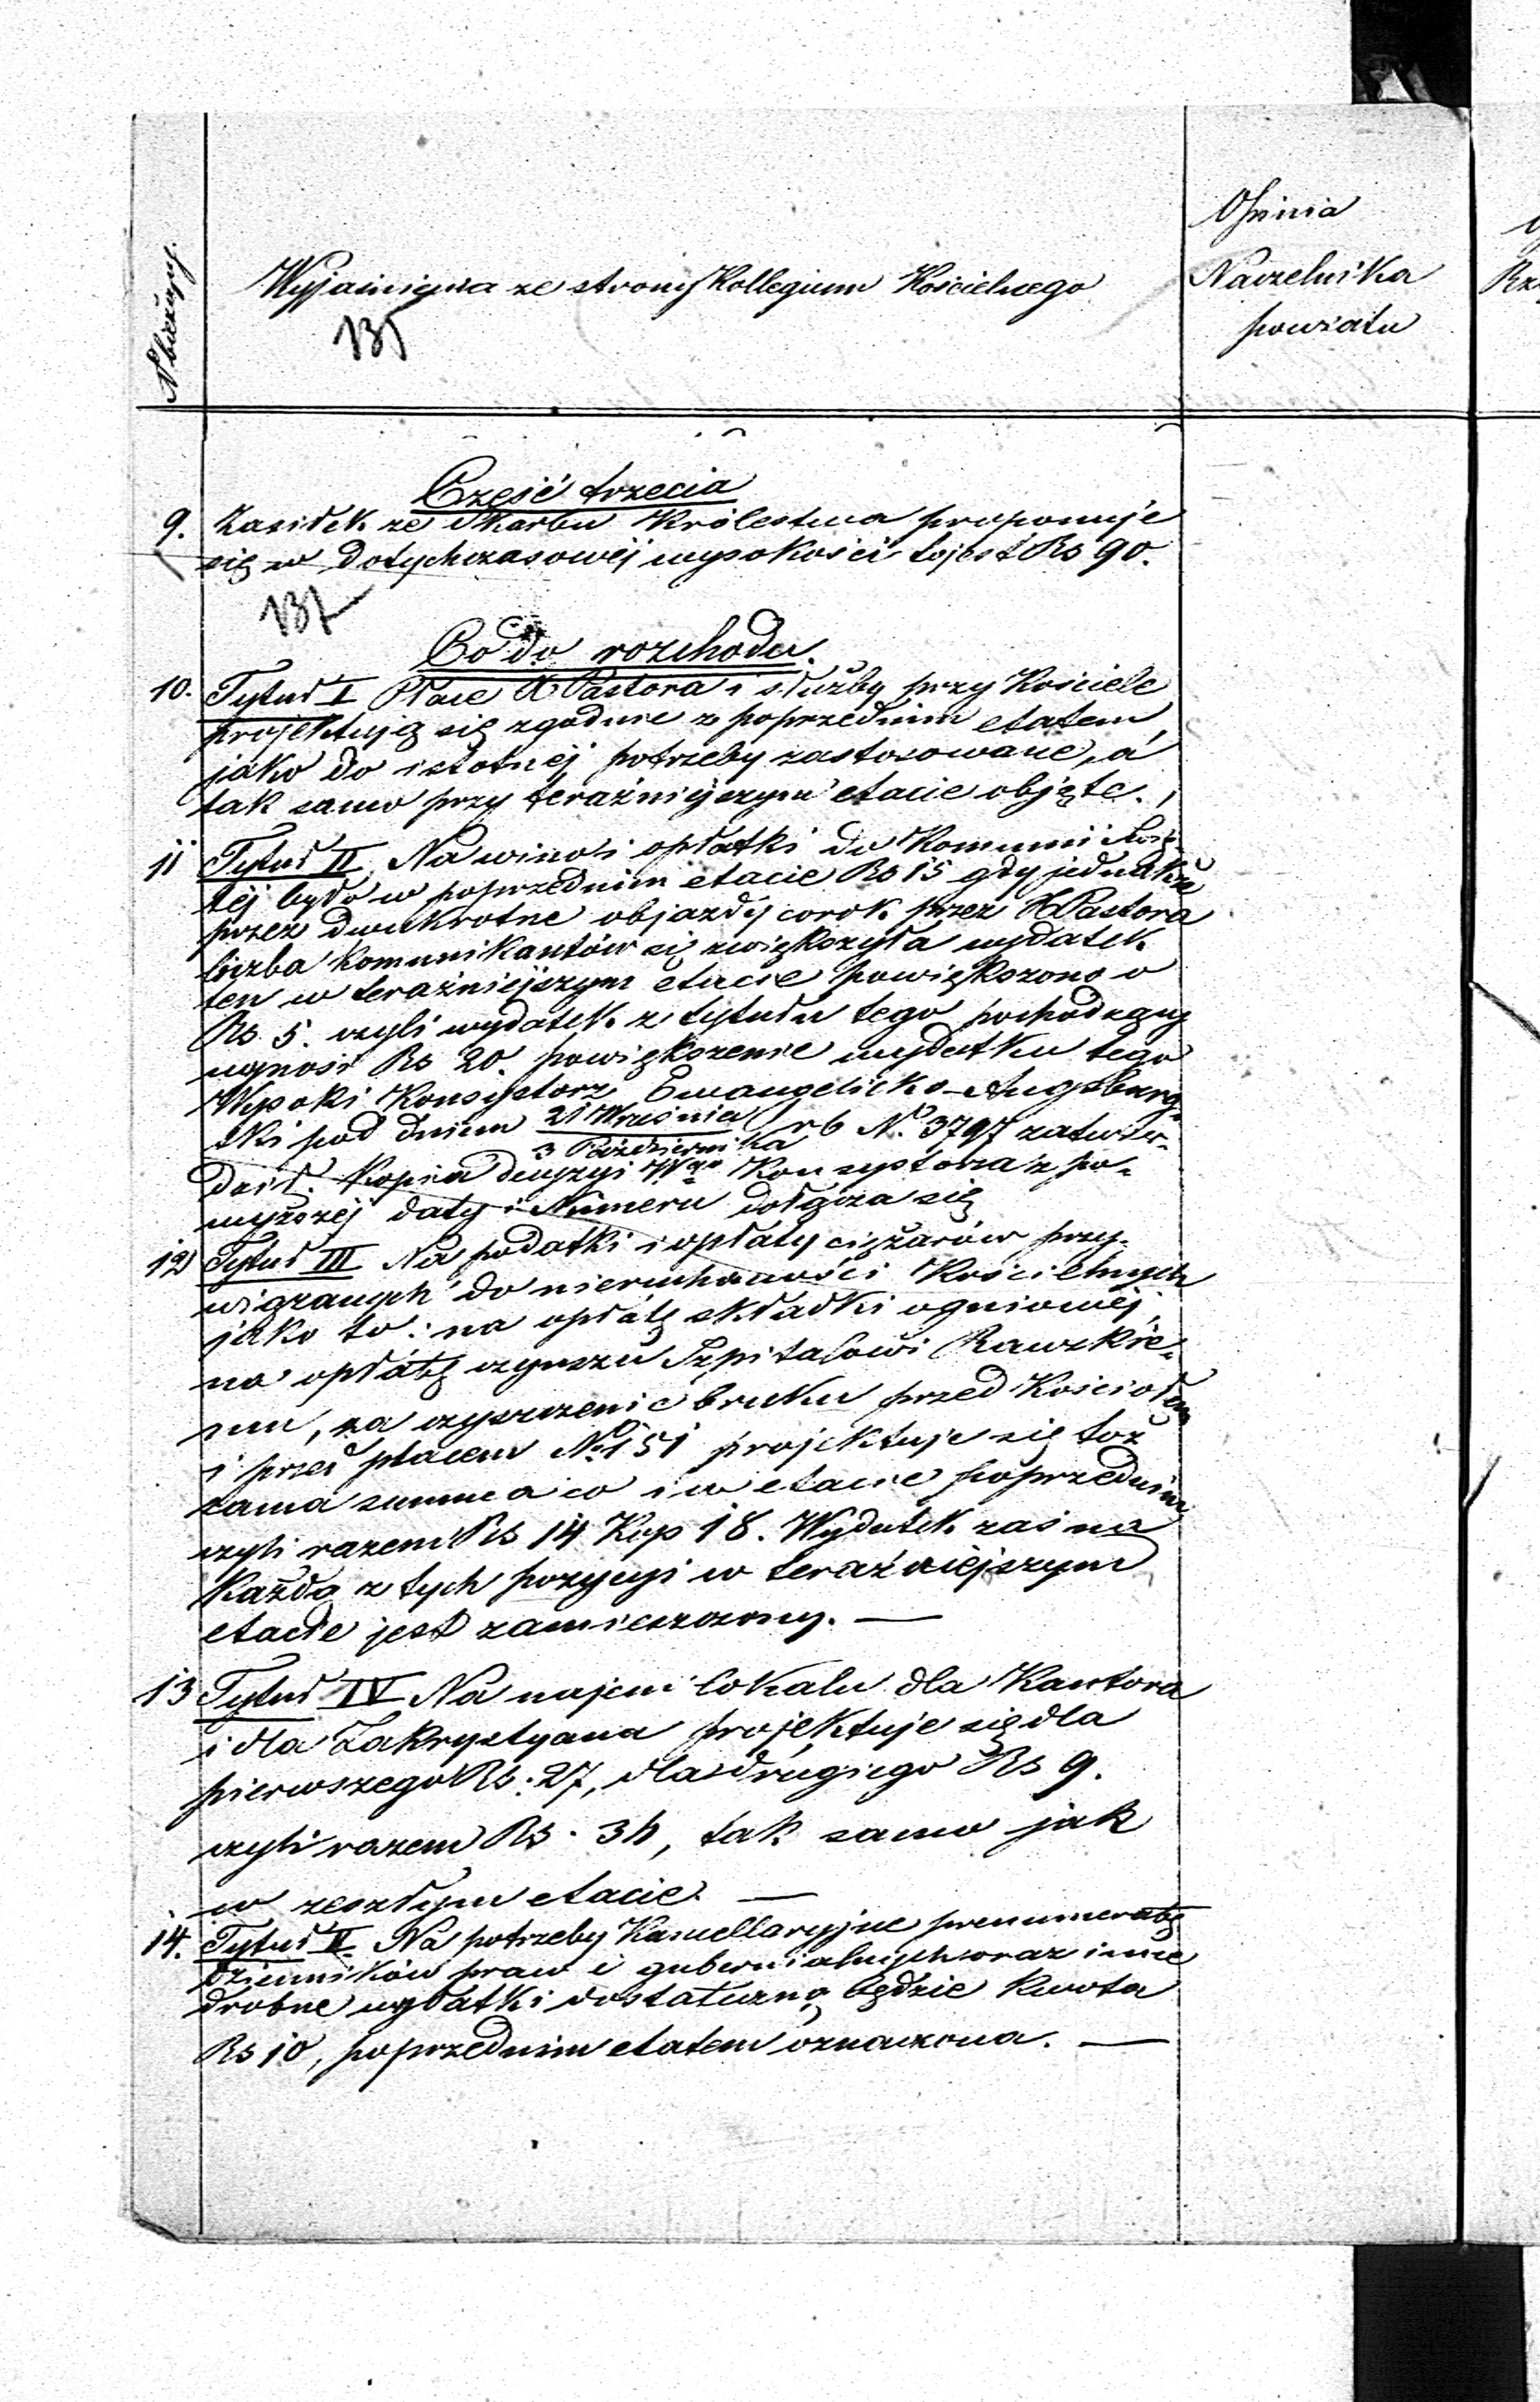 N bieżący.
Wyjaśnienia ze strony Kollegium Kościelnego
135
Opinia
Naczelnika
powiatu
Część trzecia
9. Zasiłek ze Skarbu Królestwa proponuje
się w dotychczasowéj wysokości to jest Rs 90.
137
Co do rozchodu.
10. Tytuł I Płace X Pastora i służby przy Kościele
projektują się zgodnie z poprzednim etatem
jako do istotnéj potrzeby zastosowane, a
tak samo przy teraźniejszym etacie objęte.
11 Tytuł II Na wino i opłatki do Kommunii Świę-
téj było w poprzednim etacie Rs 15 gdy jednakże
przez dwukrotne objazdy corok przez X Pastora
liczba komunikantów się zwiększyła wydatek
ten w teraźniejszym etacie powiększono o
Rs 5. czyli wydatek z tytułu tego pochodzący
wynosi Rs 20. powiększenie wydatku tego
Wysoki Konsystorz Ewangelicko-Augsburg-
ski pod dniem 21 Września / 3 Października rb N. 3797 zatwier-
dził. Kopia decyzyi Wgo Konsystorza z po-
wyższéj daty i Numeru dołącza się
12 Tytuł III Na podatki i opłaty ciężarów przy-
wiązanych do nieruchomości Kościelnych
jako to: na opłatę składki ogniowéj,
na opłatę czynszu Szpitalowi Rawskie-
mu, za czyszczenie bruku przed Kościołem
i przed placem No 151 projektuje się toż
sama summa co i w etacie poprzednim
czyli razem Rs 14 Kop 18. Wydatek zaś na
każdą z tych pozycyi w teraźniejszym
etacie jest zamieszczony. —
13 Tytuł IV Na najem lokalu dla Kantora
i dla Zakrystyana projektuje się dla
pierwszego Rs. 27, dla drugiego Rs 9.
czyli razem Rs. 36, tak samo jak
w zeszłym etacie. —
14. Tytuł V Na potrzeby Kancellaryjne prenumeratę
dzienników praw i gubernialnych oraz inne
drobne wydatki dostateczną będzie kwota
Rs 10, poprzednim etatem oznaczona. —